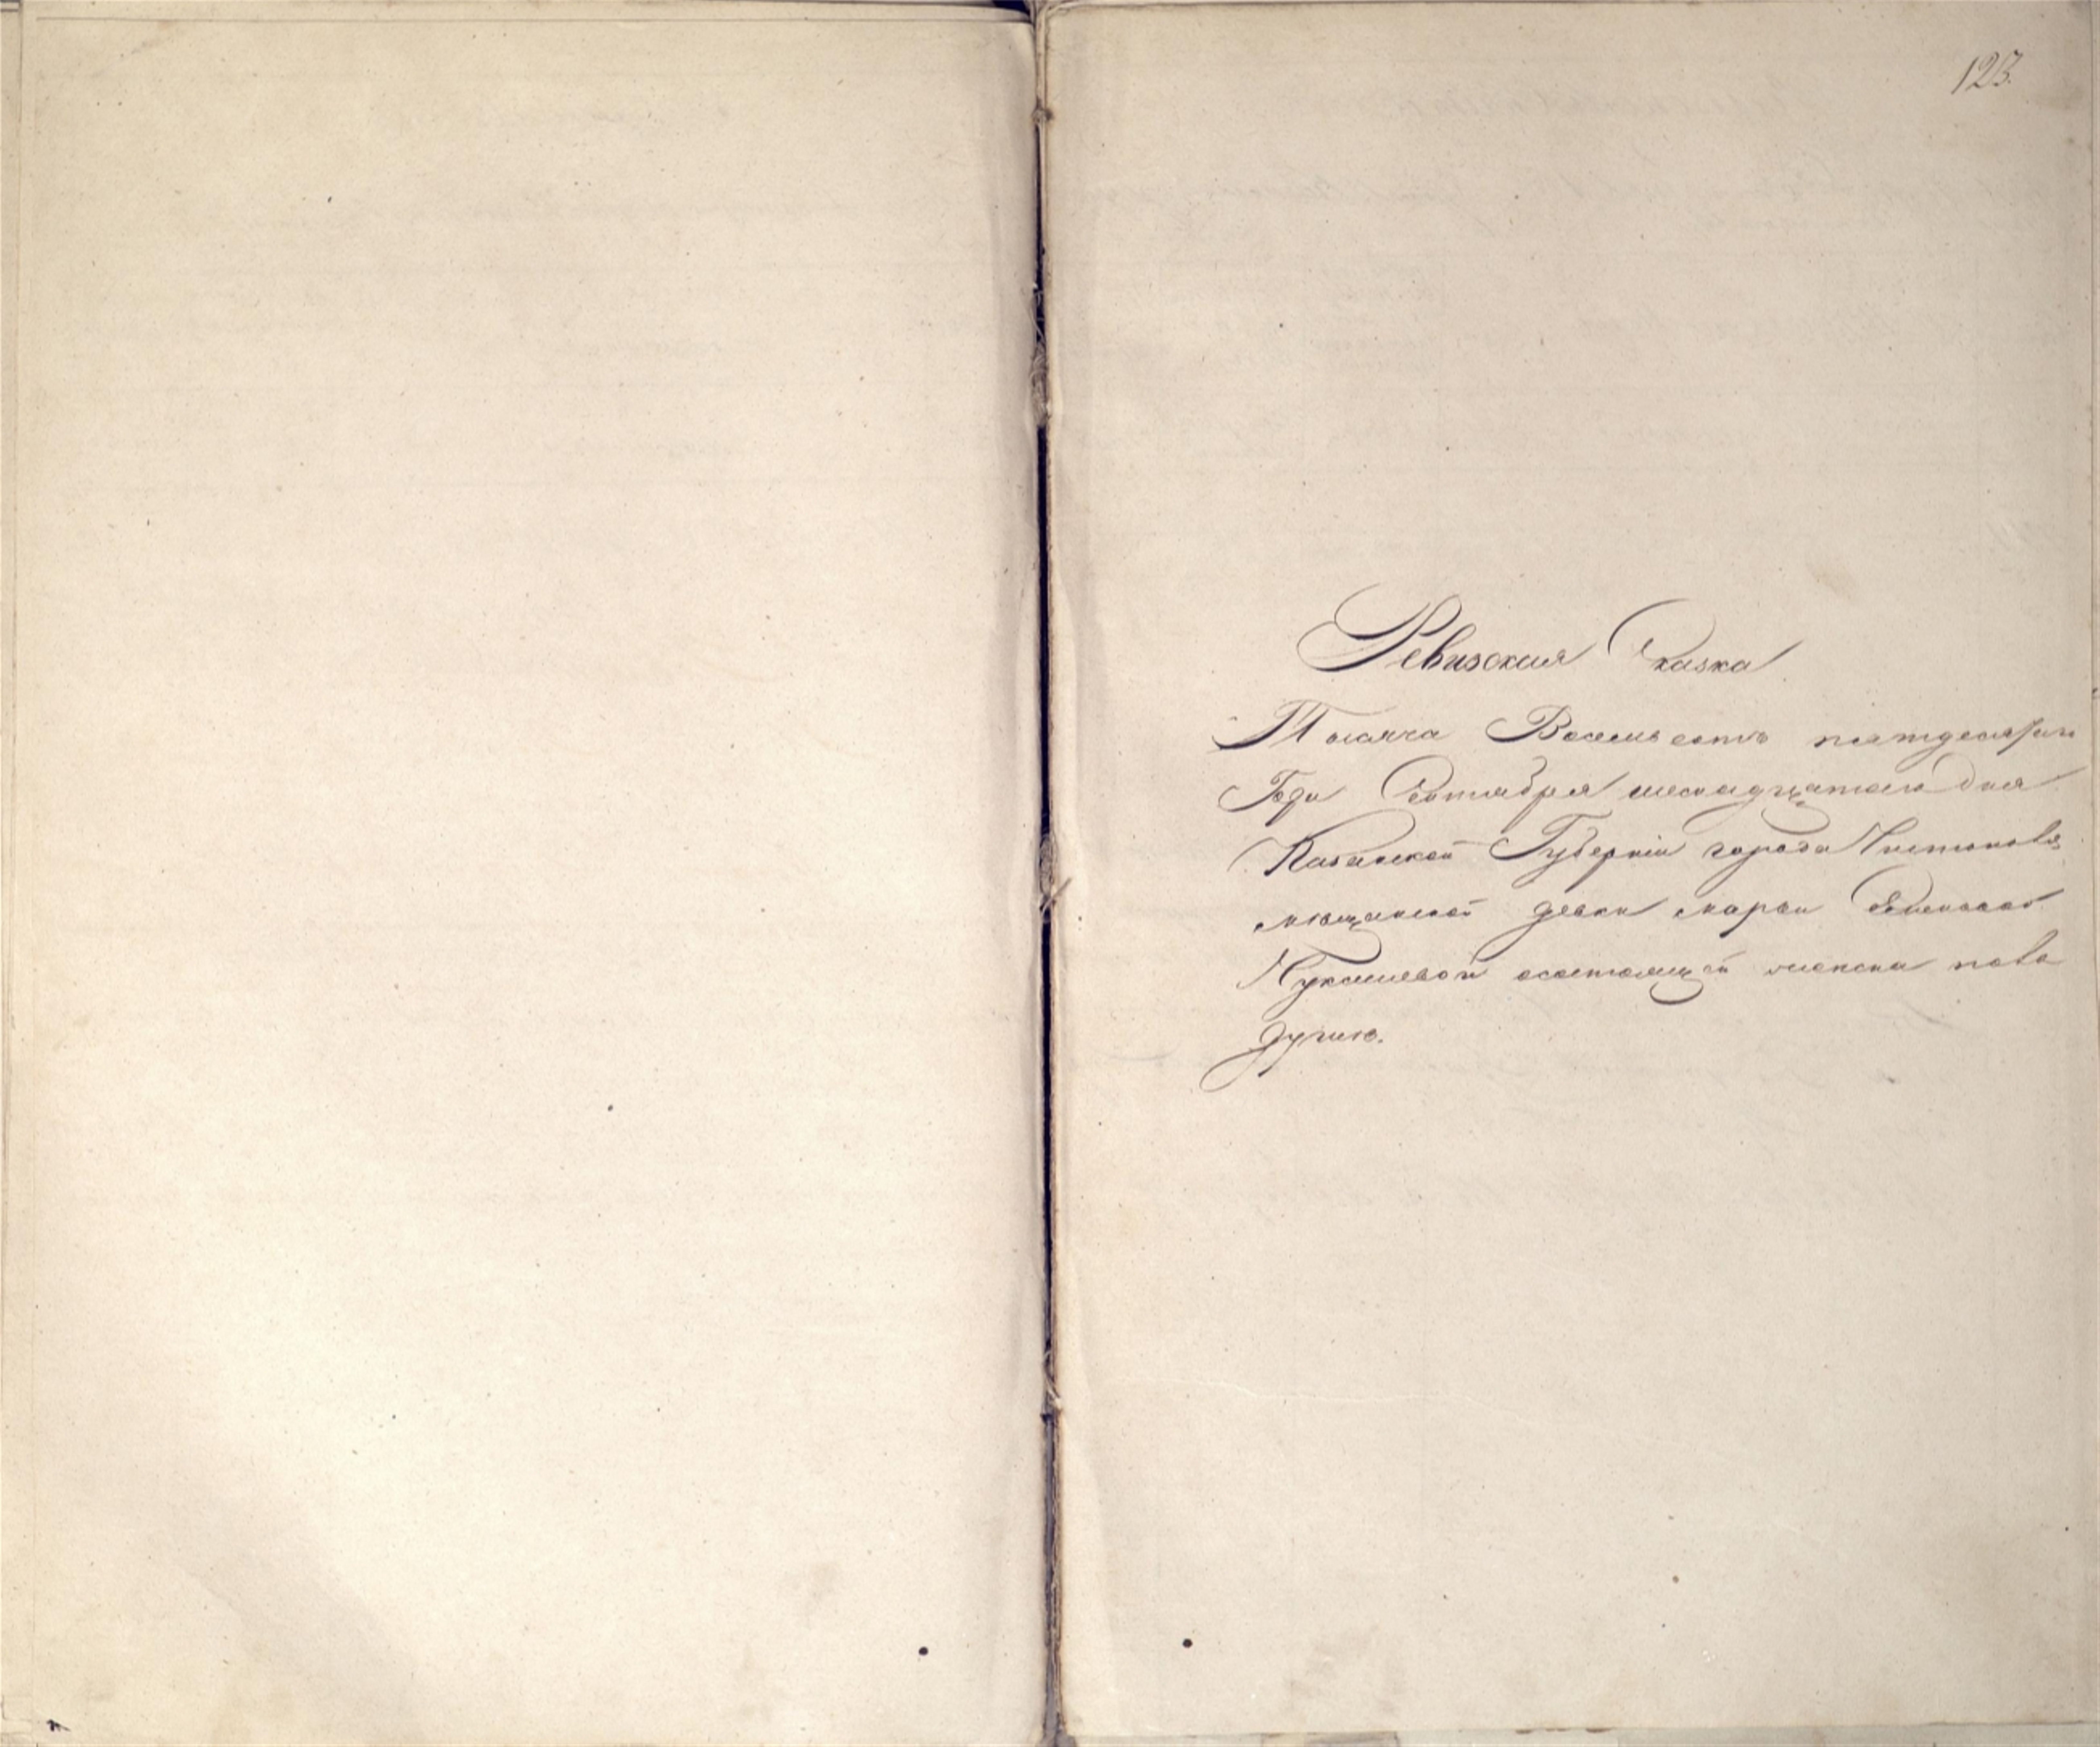 123.
Ревизская Сказка
Тысяча Восемьсотъ пятдесятаго
Года Сентября шеснадцатаго Дня
Казанской Губерніи города Чистополя
мѣщанской девки марьи Семеновой
состоящей
душѣ.